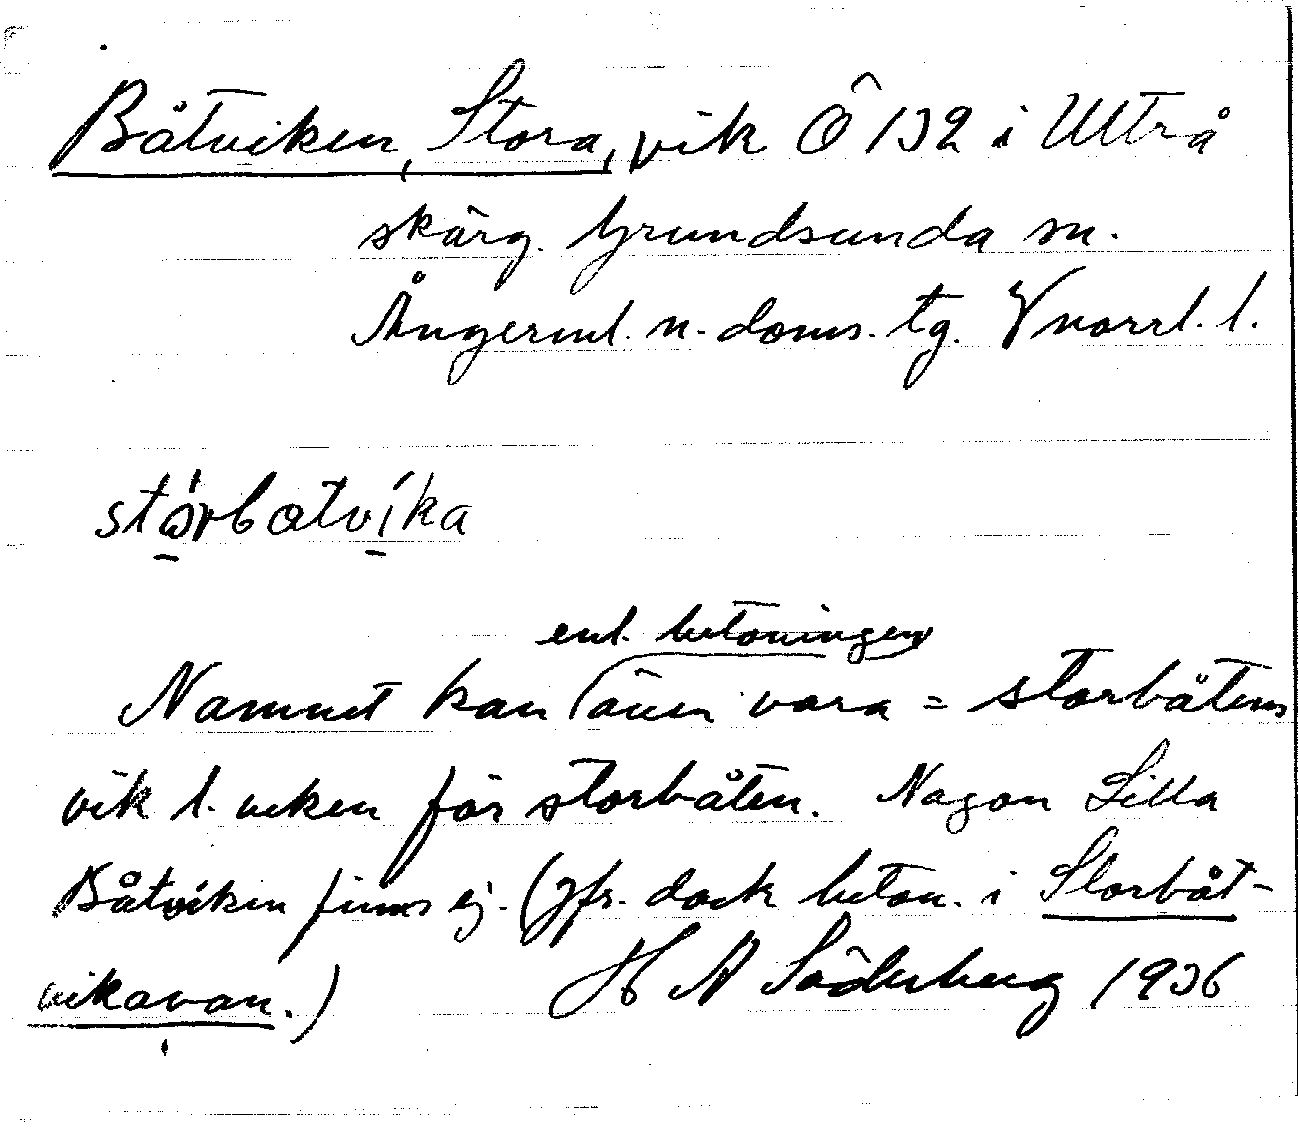 Båtviken, Stora, vik Ö 132 i Ultrå
skärg. Grundsunda sn.
Ångerml. n. doms. tg. Vnorrl. l.
stórbatvíka
enl. betoningen
Namnet kan även vara = storbåtens
vik l. viken för storbåten. Någon Lilla
Båtviken finns ej. (Jfr. dock beton. i Storbåt-
vikavan.) H A Söderberg 1936